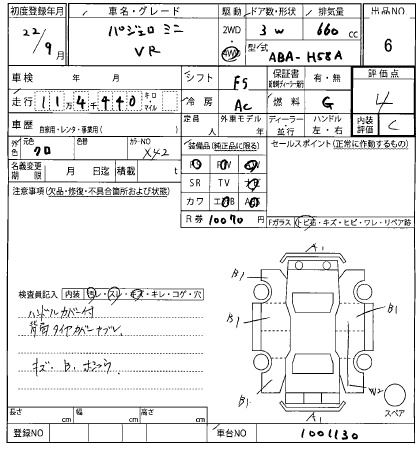 初度登録年月 車名・グレード 駆動 ドア数・形状 排気量 出品NO
22/9月 パジェロ ミニ VR 2WD 4WD 3W 660cc 6
型式 ABA-H58A
車検 年 月 シフト F5 保証書 有・無 評価点
走行 11万4440 キロ・マイル 冷房 AC 燃料 G 4
車歴 自家用・レンタ・事業用( ) 定員 人 外車モデル 年 ディーラー 並行 ハンドル 左・右 内装評価 C
外色 元色 クロ 色替 カラーNO X42 装備品(純正品に限る) セールスポイント(正常に動作するもの)
名義変更期限 月 日迄 積載 t PS PW
SR TV
カワ
注意事項(欠品・修復・不具合箇所および状態)
R券 10070円
Fガラス(トビ石・キズ・ヒビ・ワレ・リペア跡
A1
B1 B1
B1 B1
検査員記入 内装 汚レ・スレ・キズ・キレ・コゲ・穴
ハンドルカバー付
背面タイヤカバー
キズ・B・
B1 W2
スペア
A1
長さ cm 幅 cm 高さ cm
登録NO 車台NO 1001130